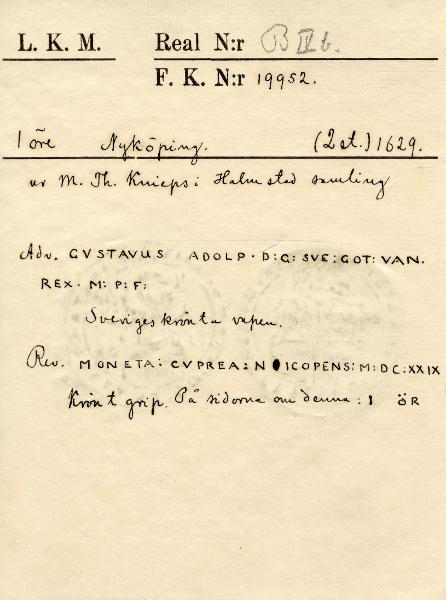 L. K. M. Real N:r B IV b.
F. K. N:r 19952.
1 öre Nyköping. (2 st.) 1629.
ur M. Th. Knieps i Halmstad samling
Adv. GVSTAVUS ADOLP · D: G: SVE: GOT: VAN.
REX · M: P: F:
Sveriges krönta vapen.
Rev. MONETA: CVPREA: N ICOPENS: M: DC: XXIX
Krönt grip. På sidorna om denna: 1 ÖR